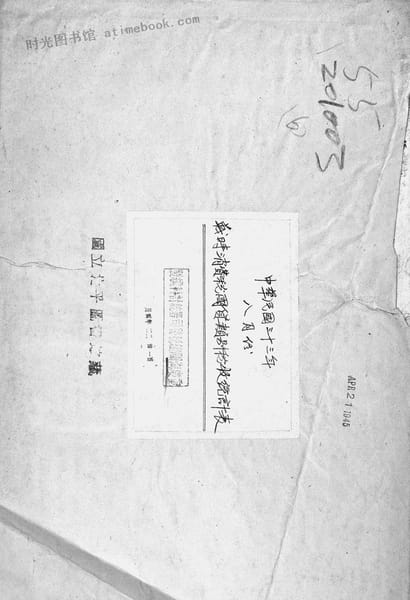 时光图书馆 atimebook.com
55
201003
中華民國三十三年
八月份
戰時消費稅國貨類別稅收統計表
國立北平圖書館藏
APR 21 1945